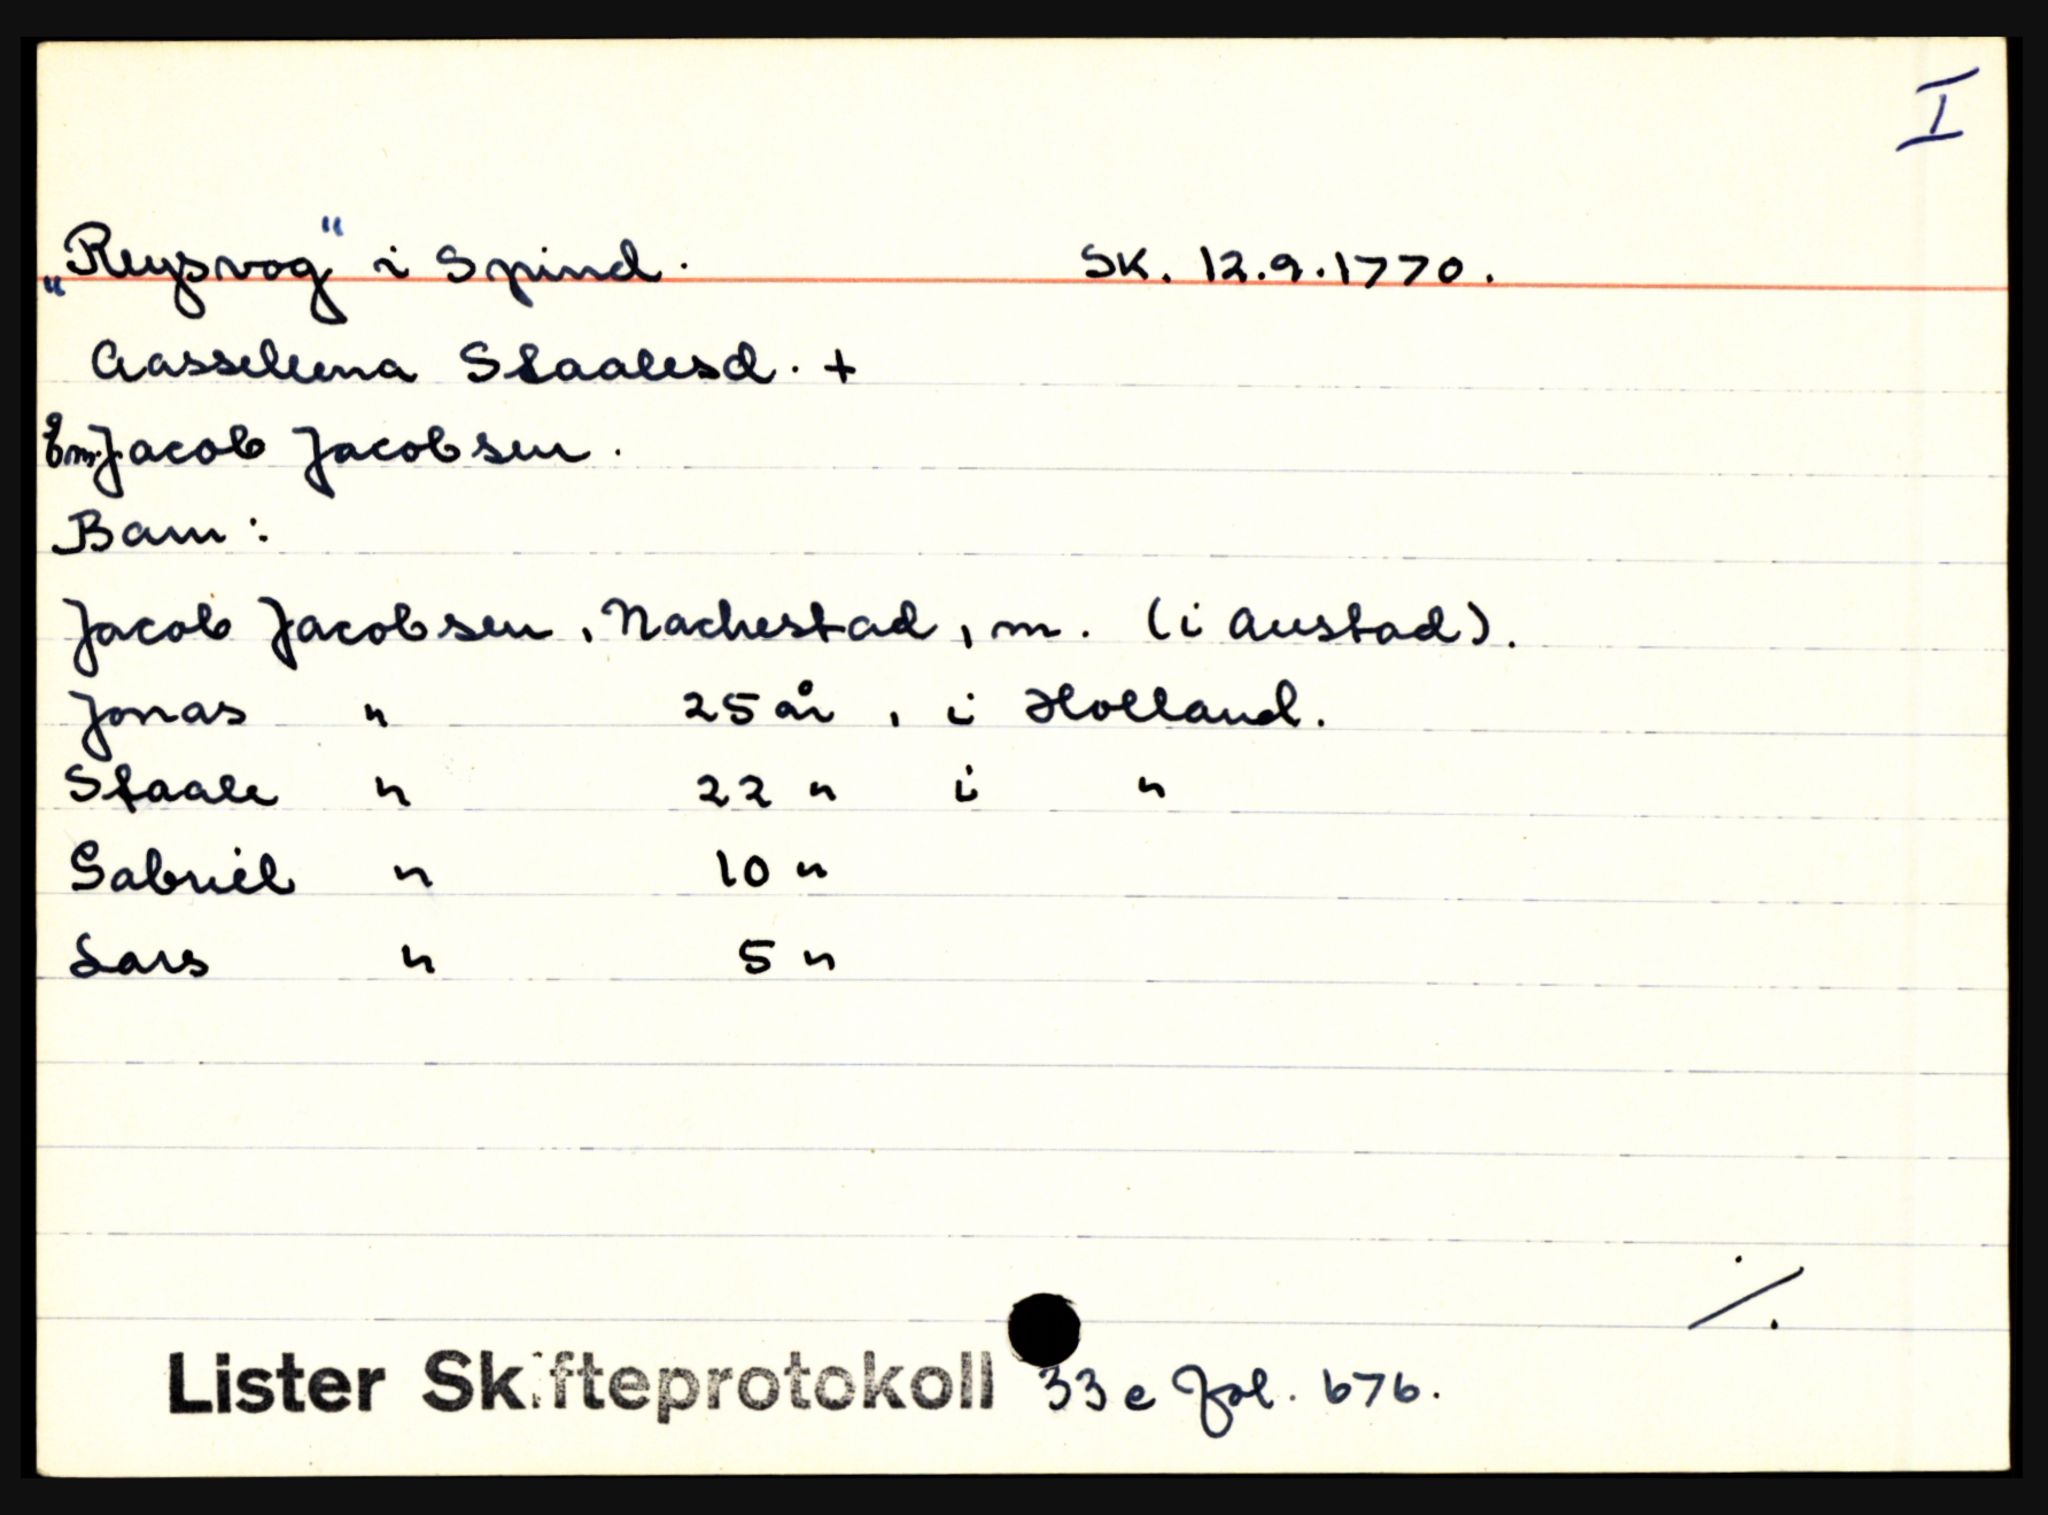 I
„Reysvog“ i Spind. SK. 12.9.1770.
Aasseleena Staalesd. +
Em. Jacob Jacobsen.
Barn:
Jacob Jacobsen, Nachestad, m. (i Austad).
Jonas " 25 år, i Holland.
Staale " 22 " i "
Gabriel " 10 "
Lars " 5 "
./.
Lister Skifteprotokoll 33 e fol. 676.